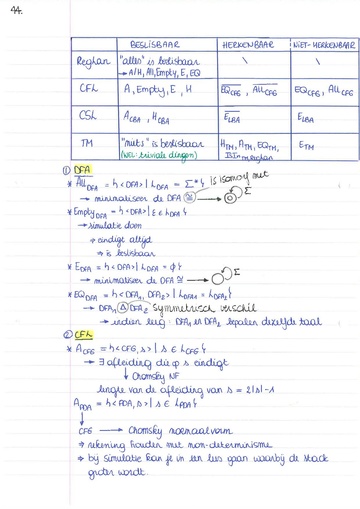 44.
BESLISBAAR HERKENBAAR NIET-HERKENBAAR
Regulair "alles" is beslisbaar \ \
→ A/H, All, Empty, E, EQ
CFL A, Empty, E, H EQ_CFG, ALL_CFG EQ_CFG, ALL_CFG
CSL A_LBA, H_LBA E_LBA E_LBA
TM "niets" is beslisbaar H_TM, A_TM, EQ_TM, E_TM
(WEL: triviale dingen)
① DFA
* All_DFA = {<DFA> | L_DFA = Σ*} is isomorf met
→ minimaliseer de DFA ≅ → Σ
* Empty_DFA = {<DFA> | ε ∈ L_DFA}
→ simulatie doen
→ eindigt altijd
⇒ is beslisbaar
* E_DFA = {<DFA> | L_DFA = ϕ}
→ minimaliseer de DFA ≅ → Σ
* EQ_DFA = {<DFA₁, DFA₂> | L_DFA1 = L_DFA2}
→ DFA₁ Δ DFA₂ symmetrisch verschil
→ indien leeg: DFA₁ en DFA₂ bepalen dezelfde taal
② CFL
* A_CFG = {<CFG, s> | s ∈ L_CFG}
→ ∃ afleiding die op s eindigt
↓ Chomsky NF
lengte van de afleiding van s = 2|s|-1
A_PDA = {<PDA, s> | s ∈ L_PDA}
↓
CFG → Chomsky normaalvorm
⇒ rekening houden met non-determinisme
⇒ bij simulatie kan je in een lus gaan waarbij de stack
groter wordt.